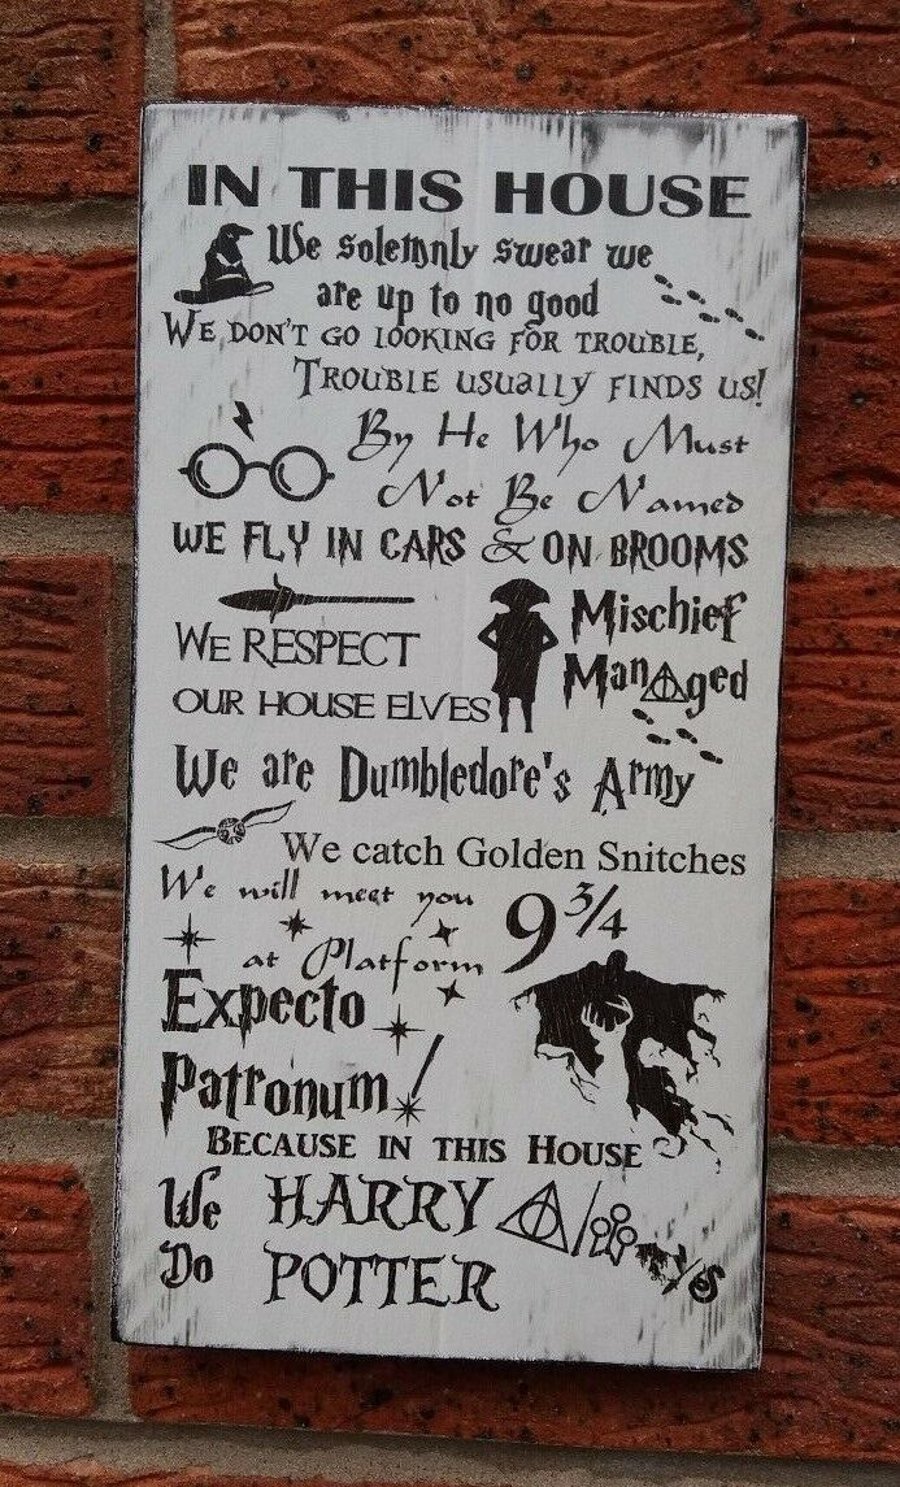 IN THIS HOUSE
We solemnly swear we
are up to no good
WE DON'T GO LOOKING FOR TROUBLE,
TROUBLE USUALLY FINDS US!
By He Who Must
Not Be Named
WE FLY IN CARS & ON BROOMS
WE RESPECT
OUR HOUSE ELVES
Mischief
Managed
We are Dumbledore's Army
We catch Golden Snitches
We will meet you
at Platform
9 3/4
Expecto
Patronum!
BECAUSE IN THIS HOUSE
We HARRY
Do POTTER